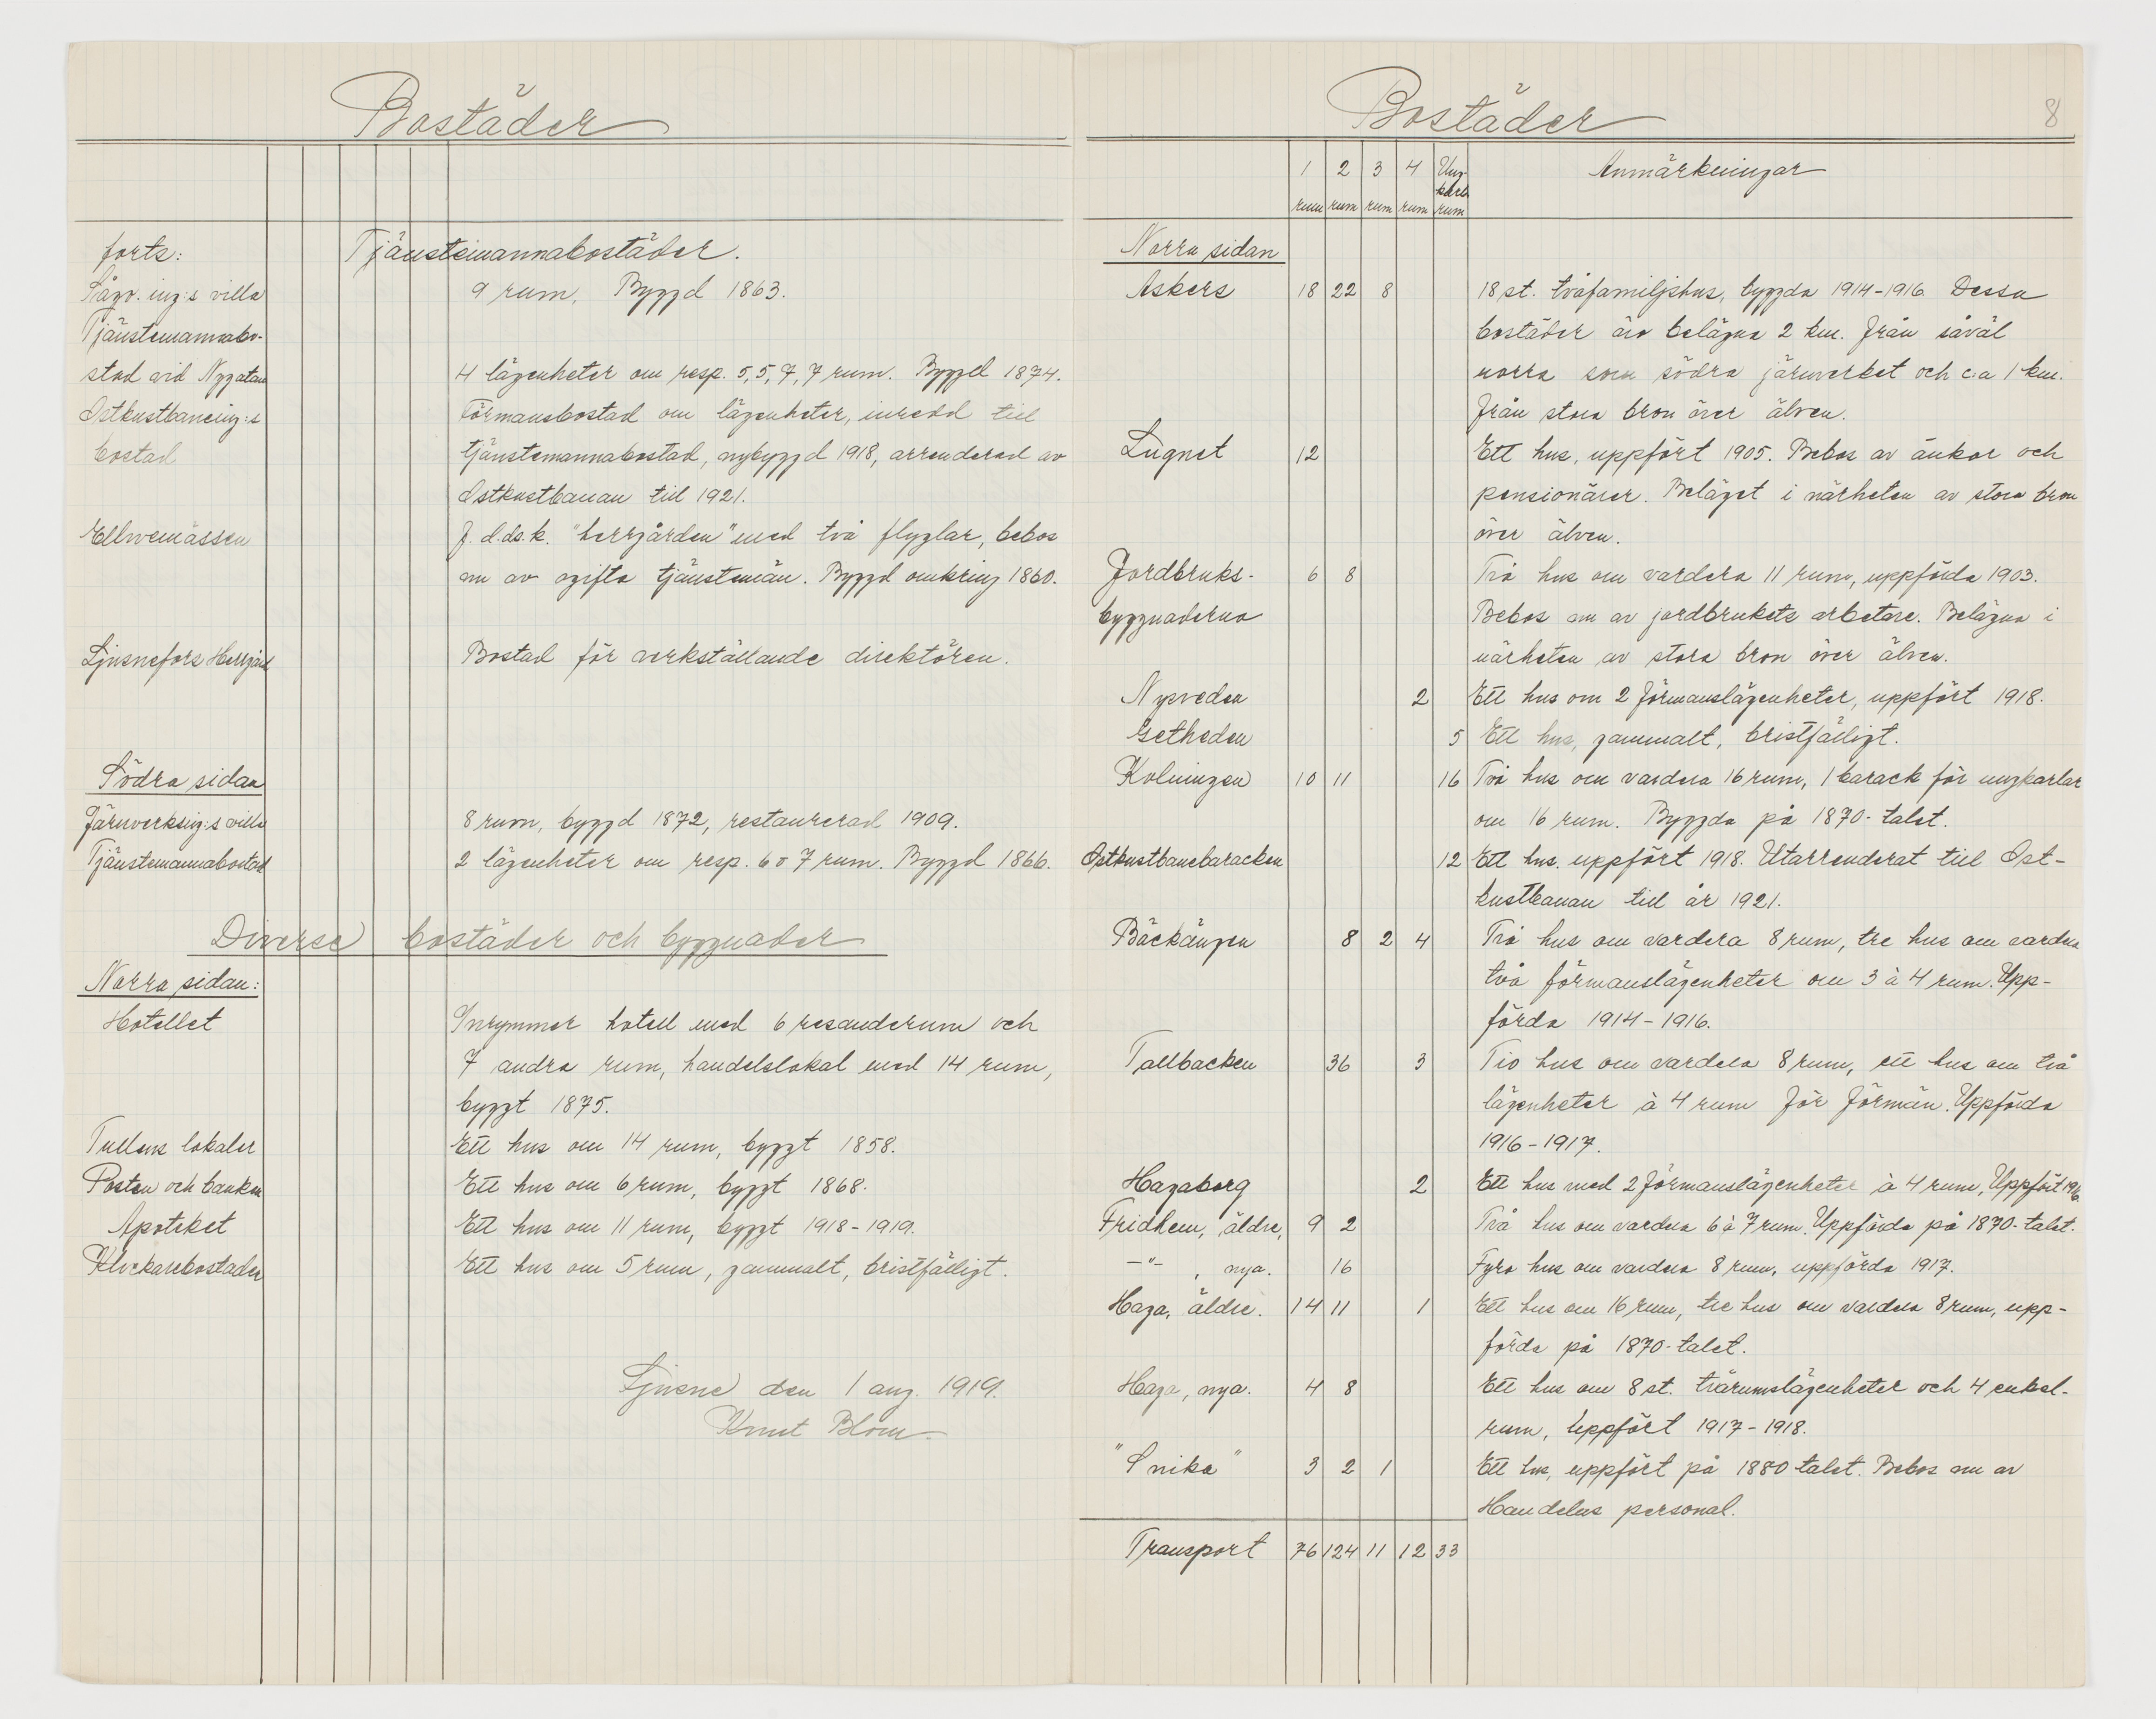 Bostäder
forts: Tjänstemannabostäder.
Sågv. ing:s villa 9 rum, Byggd 1863.
Tjänstemannabo-
stad vid Nygatan 4 lägenheter om resp. 5,5,7,7 rum. Byggd 1874.
Ostkustbaneing:s Förmansbostad om lägenheter, inredd till
bostad tjänstemannabostad, nybyggd 1918, arrenderad av
Ostkustbanan till 1921.
Ellwemässen F. d. ds.k. "herrgården" med två flyglar, bebos
nu av ogifta tjänstemän. Byggd omkring 1860.
Ljusnefors Herrgård Bostad för verkställande direktören.
Södra sidan
Järnverksing:s villa 8 rum, byggd 1872, restaurerad 1909.
Tjänstemannabostad 2 lägenheter om resp. 6 o 7 rum. Byggd 1866.
Diverse bostäder och byggnader
Norra sidan:
Hotellet Inrymmer hotell med 6 resanderum och
7 andra rum, handelslokal med 14 rum,
byggt 1875.
Tullens lokaler Ett hus om 14 rum, byggt 1858.
Posten och banken Ett hus om 6 rum, byggt 1868.
Apoteket Ett hus om 11 rum, byggt 1918-1919.
Klockarebostaden Ett hus om 5 rum, gammalt, bristfälligt.
Ljusne den 1 aug. 1919.
Knut Blom
Bostäder 8
1 2 3 4 Ung- Anmärkningar
karls
rum rum rum rum rum
Norra sidan
Askers 18 22 8 18 st. tvåfamiljshus, byggda 1914-1916. Dessa
bostäder äro belägna 2 km. från såväl
norra som södra järnverket och c:a 1 km.
från stora bron över älven.
Lugnet 12 Ett hus, uppfört 1905. Bebos av änkor och
pensionärer. Beläget i närheten av stora bron
över älven.
Jordbruks- 6 8 Två hus om vardera 11 rum, uppförda 1903.
byggnaderna Bebos nu av jordbrukets arbetare. Belägna i
närheten av stora bron över älven.
Nyveden 2 Ett hus om 2 förmanslägenheter, uppfört 1918.
Getheden 5 Ett hus, gammalt, bristfälligt.
Kolningen 10 11 16 Två hus om vardera 16 rum, 1 barack för ungkarlar
om 16 rum. Byggda på 1870-talet.
Ostkustbanebaracken 12 Ett hus. uppfört 1918. Utarrenderat till Ost-
kustbanan till år 1921.
Bäckängen 8 2 4 Två hus om vardera 8 rum, tre hus om vardera
två förmanslägenheter om 3 à 4 rum. Upp-
förda 1914-1916.
Tallbacken 36 3 Tio hus om vardera 8 rum, ett hus om två
lägenheter à 4 rum för förmän. Uppförda
1916-1917.
Hagaborg 2 Ett hus med 2 förmanslägenheter à 4 rum, Uppfört 1916.
Fridhem, äldre, 9 2 Två hus om vardera 6 à 7 rum. Uppförda på 1870-talet.
-"- , nya. 16 Fyra hus om vardera 8 rum, uppförda 1917.
Haga, äldre. 14 11 1 Ett hus om 16 rum, tre hus om vardera 8 rum, upp-
förda på 1870-talet.
Haga, nya. 4 8 Ett hus om 8 st. tvårumslägenheter och 4 enkel-
rum, Uppfört 1917-1918.
"Snika" 3 2 1 Ett hus, uppfört på 1880 talet. Bebos nu av
Handelns personal.
Transport 76 124 11 12 33